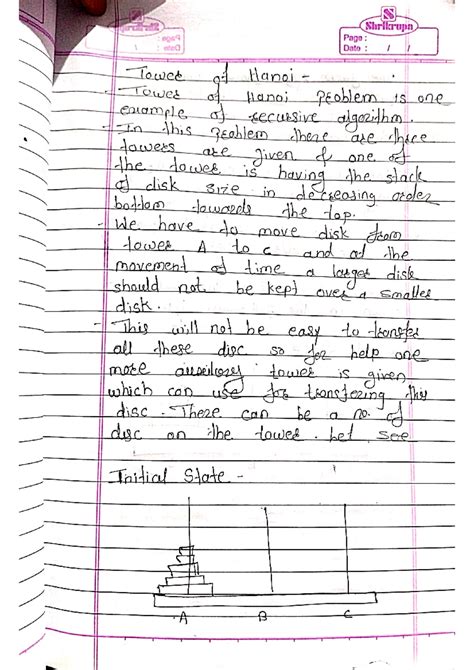 Shrikrupa
Page :
Date : / /
Tower of Hanoi -
- Tower of Hanoi Problem is one
example of recursive algorithm.
- In this problem there are three
towers are given & one of
the tower is having the stack
of disk size in decreasing order
bottom towards the top.
- We have to move disk from
tower A to C and at the
movement of time a larger disk
should not be kept over a smaller
disk.
- This will not be easy to transfer
all these disc so for help one
more auxiliary tower is given
which can use for transfering this
disc. There can be a no. of
disc on the tower. Let see
Initial State -
A B C